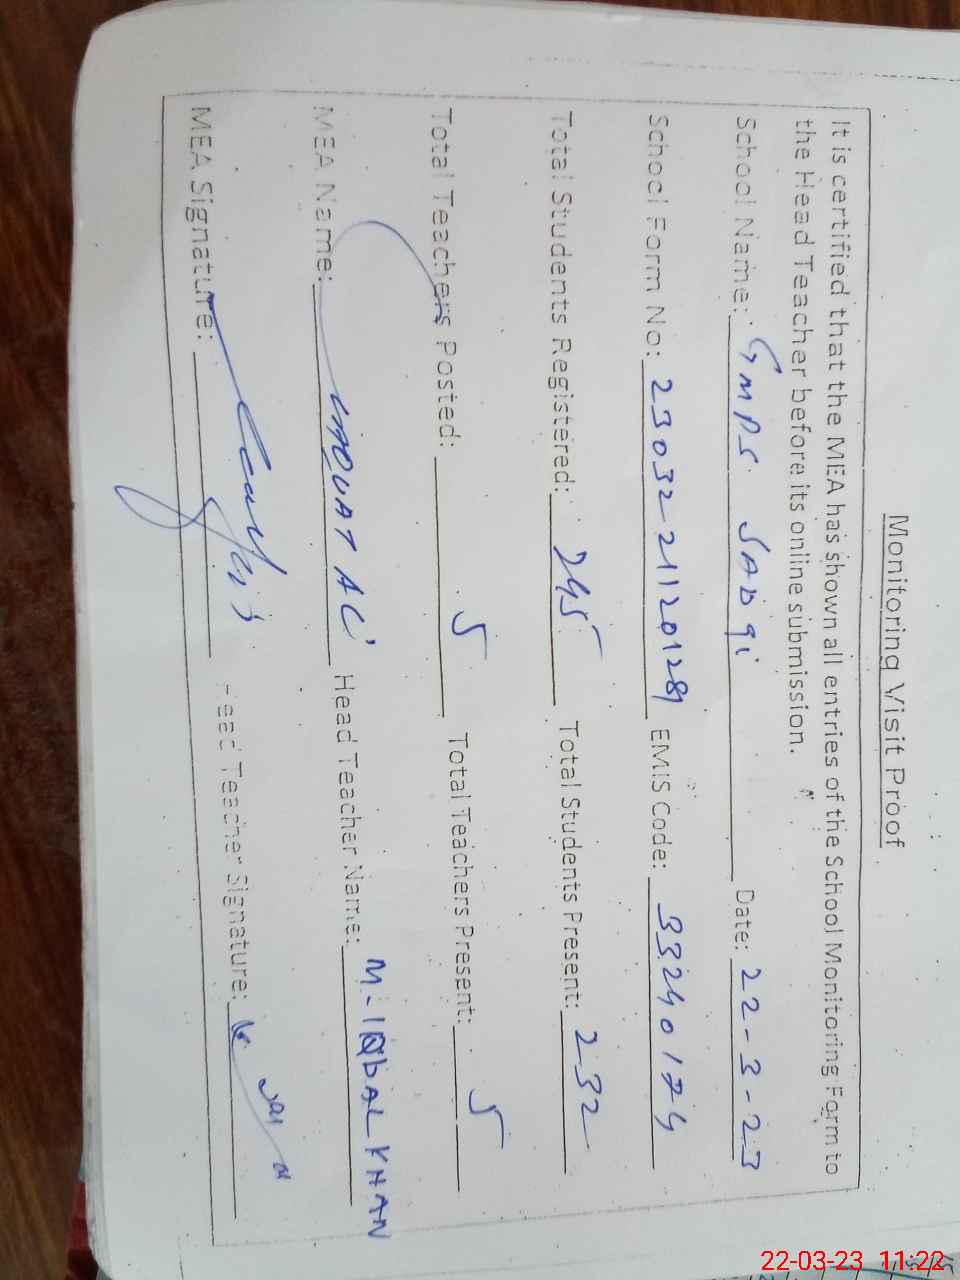 Monitoring Visit Proof
It is certified that the MEA has shown all entries of the School Monitoring Form to
the Head Teacher before its online submission.
School Name: GMPS SADqi Date: 22-3-23
School Form No: 2303221120128 EMIS Code: 33240174
Total Students Registered: 245 Total Students Present: 232
Total Teachers Posted: 5 Total Teachers Present: 5
MEA Name: Head Teacher Name: M-IQbAL KHAN
MEA Signature: Head Teacher Signature:
22-03-23 11:22